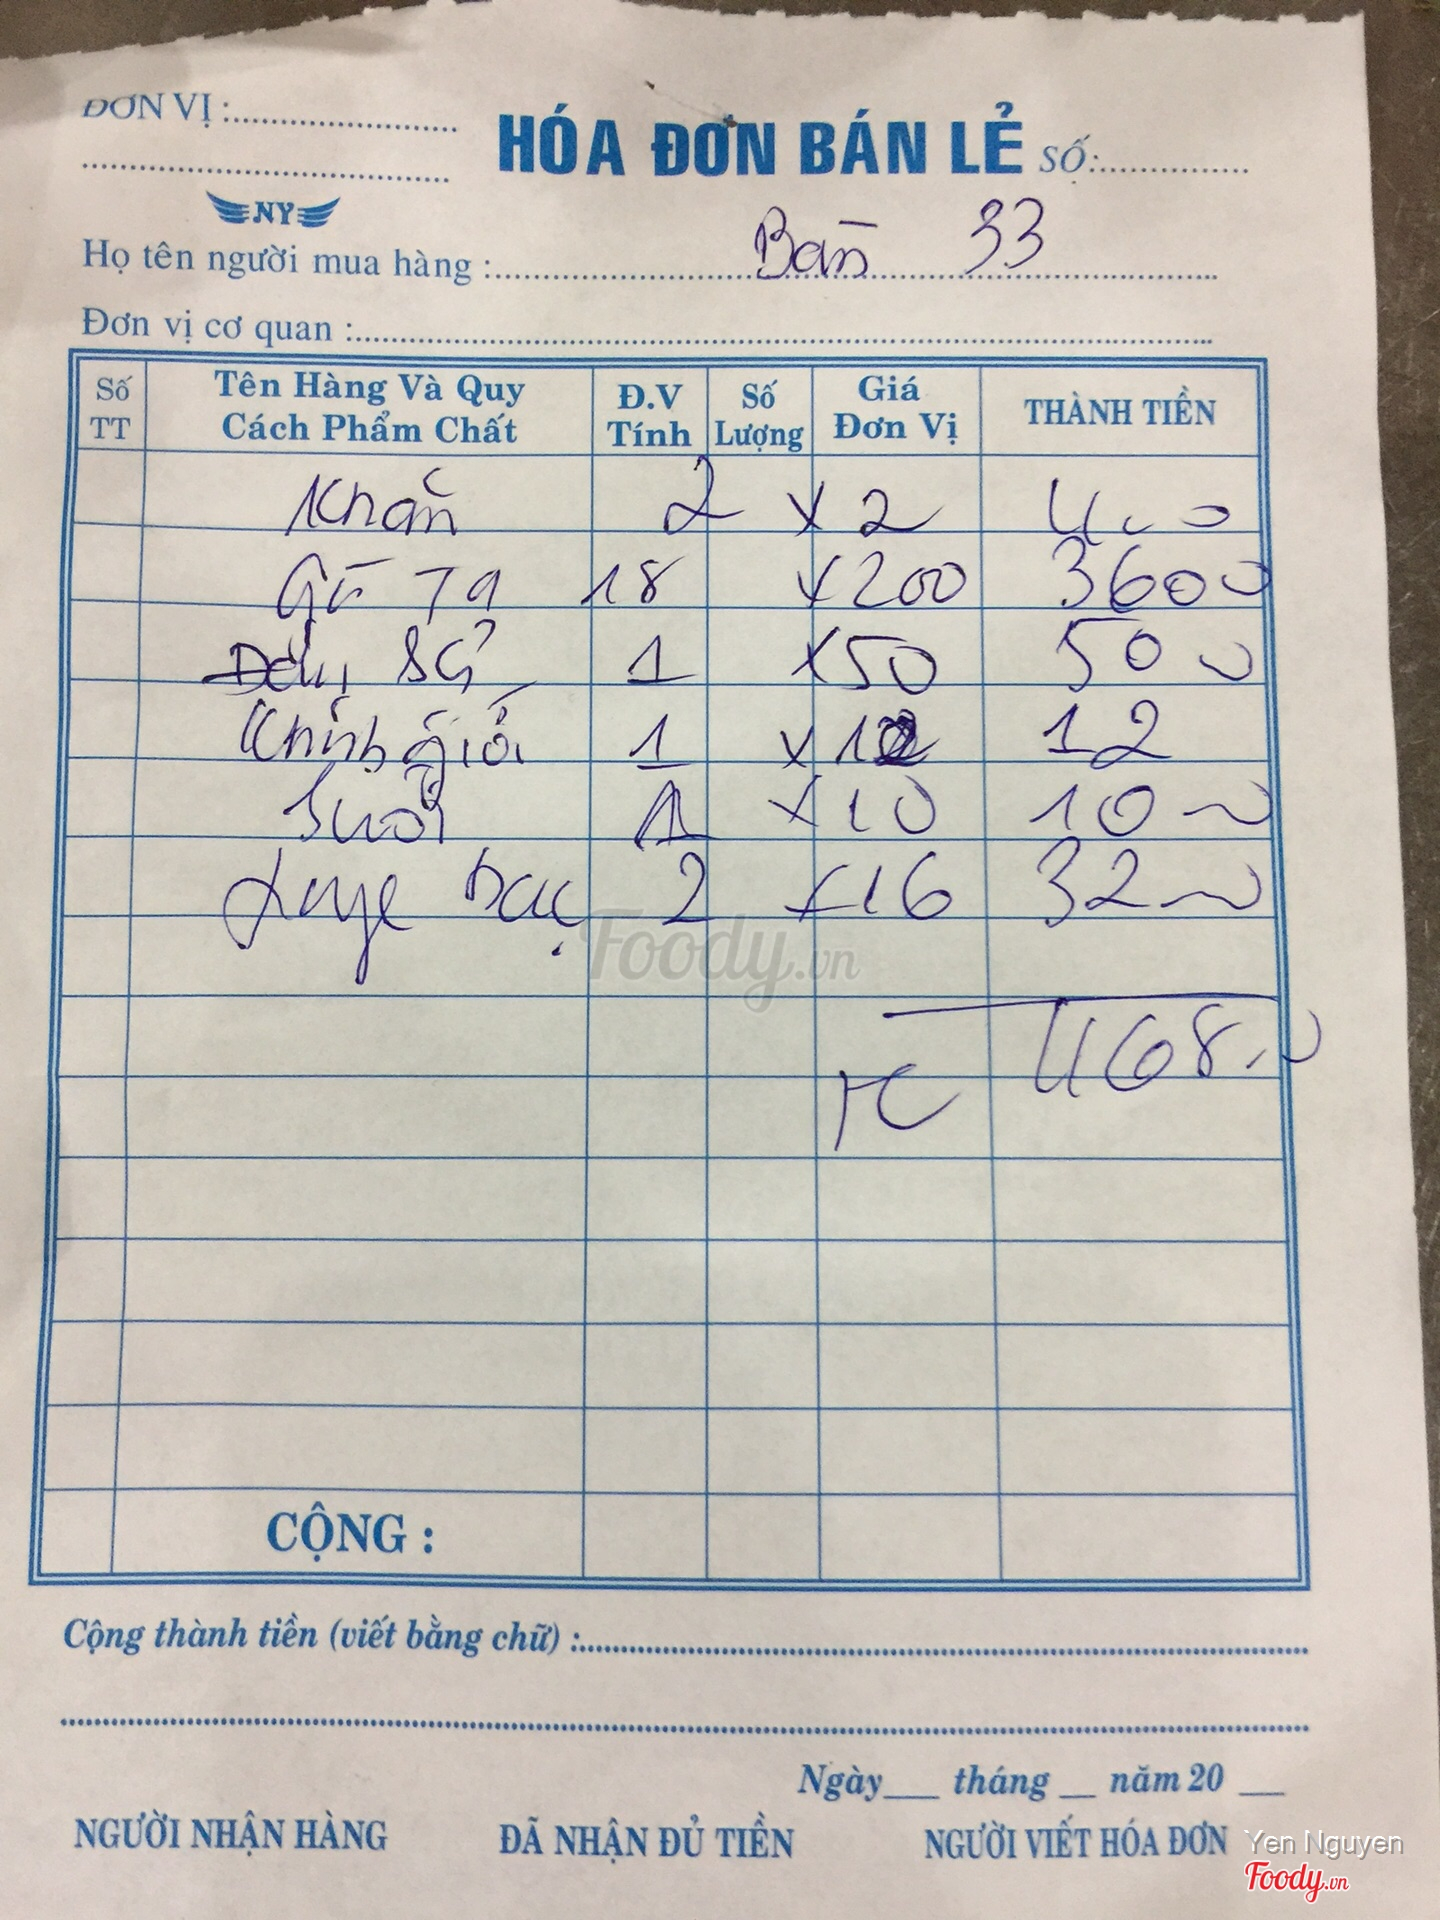 ĐƠN VỊ :
HÓA ĐƠN BÁN LẺ SỐ:
NY
Họ tên người mua hàng : Bàn 33
Đơn vị cơ quan :
Số TT Tên Hàng Và Quy Cách Phẩm Chất Đ.V Tính Số Lượng Giá Đơn Vị THÀNH TIỀN
Khăn 2 x 2 4
Gà Ta 18 x 200 360
1 x 50 50
1 x 12 12
Suối 1 x 10 10
bạc 2 x 16 32
Foody.vn
TC 468
CỘNG :
Cộng thành tiền (viết bằng chữ) :
Ngày tháng năm 20
NGƯỜI NHẬN HÀNG ĐÃ NHẬN ĐỦ TIỀN NGƯỜI VIẾT HÓA ĐƠN
Yen Nguyen
Foody.vn